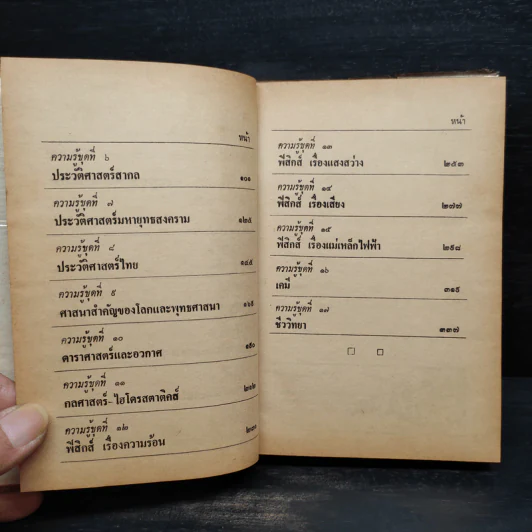 หน้า
ความรู้ชุดที่ ๖
ประวัติศาสตร์สากล ๑๐๑
ความรู้ชุดที่ ๗
ประวัติศาสตร์มหายุทธสงคราม ๑๒๕
ความรู้ชุดที่ ๘
ประวัติศาสตร์ไทย ๑๔๕
ความรู้ชุดที่ ๙
ศาสนาสำคัญของโลกและพุทธศาสนา
ความรู้ชุดที่ ๑๐
ดาราศาสตร์และอวกาศ
ความรู้ชุดที่ ๑๑
กลศาสตร์-ไฮโดรสตาติคส์
ความรู้ชุดที่ ๑๒
ฟิสิกส์ เรื่องความร้อน
หน้า
ความรู้ชุดที่ ๑๓
ฟิสิกส์ เรื่องแสงสว่าง ๒๕๓
ความรู้ชุดที่ ๑๔
ฟิสิกส์ เรื่องเสียง ๒๗๗
ความรู้ชุดที่ ๑๕
ฟิสิกส์ เรื่องแม่เหล็กไฟฟ้า ๒๙๘
ความรู้ชุดที่ ๑๖
เคมี ๓๑๙
ความรู้ชุดที่ ๑๗
ชีววิทยา ๓๓๗